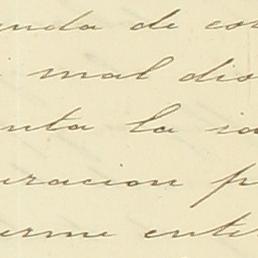 anda de co
mal dio
nta la ia
uracion p
erme ente